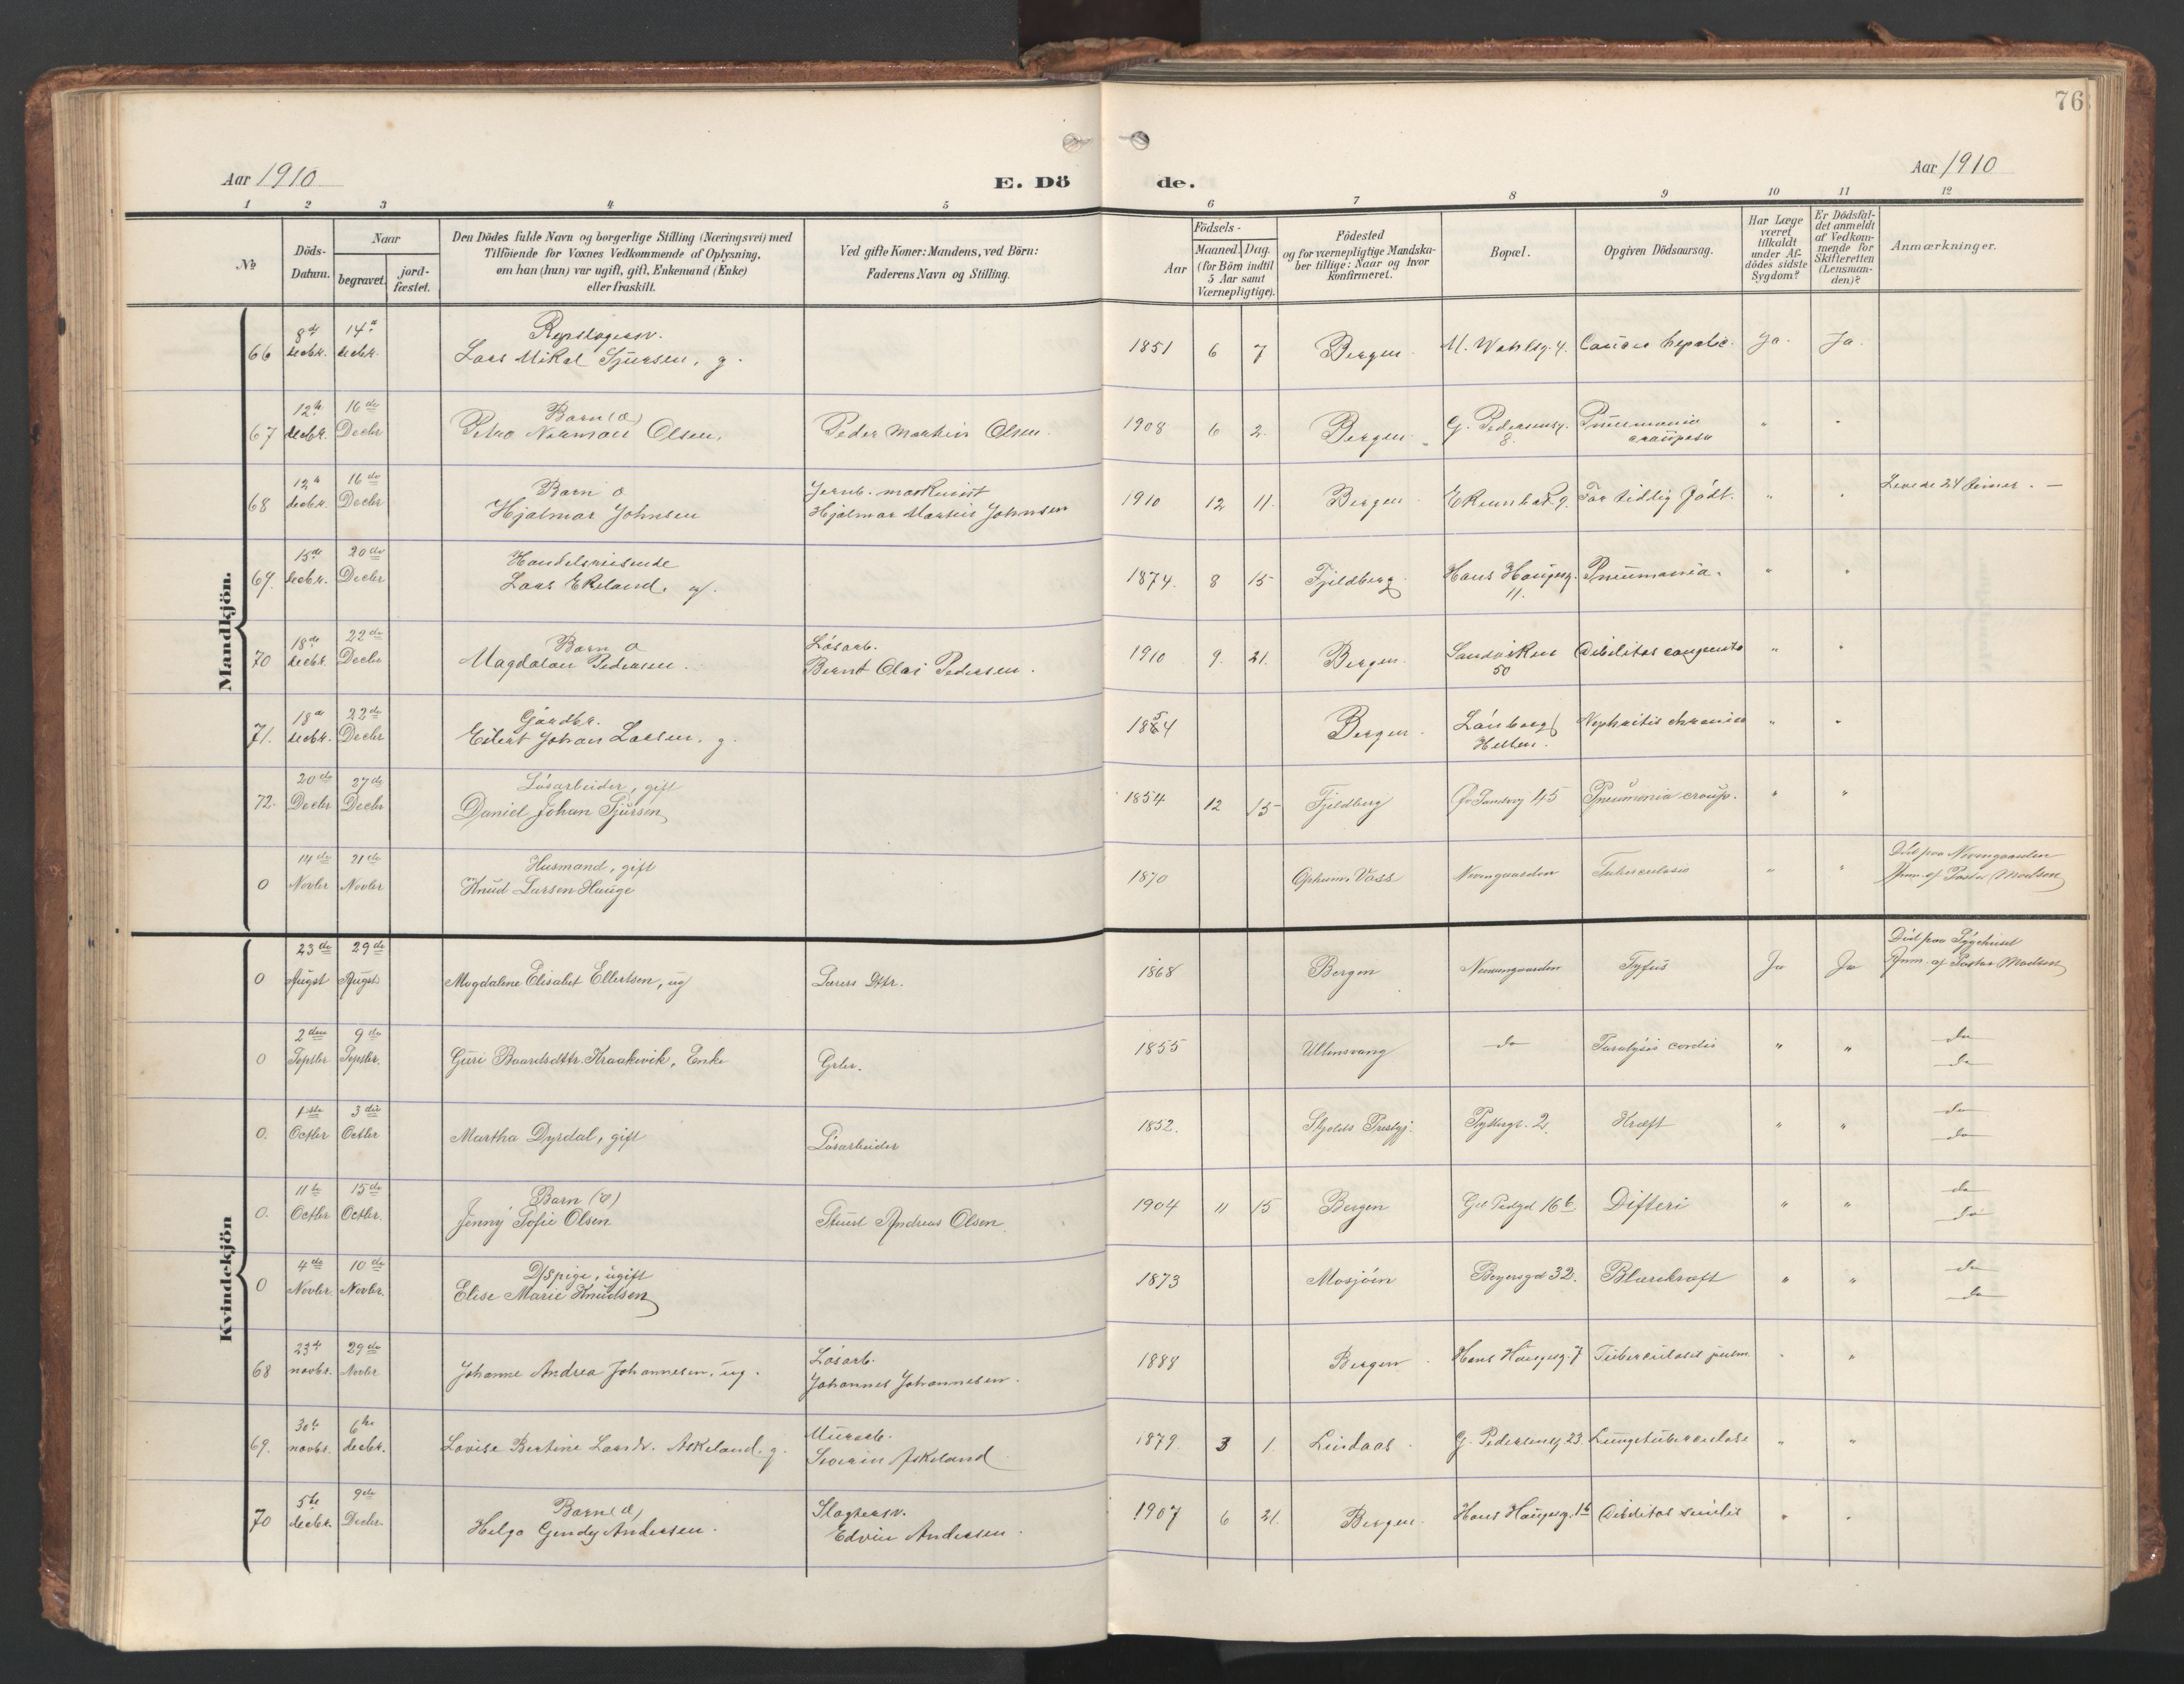 76
Aar 1910
E. Dö de.
Aar 1910
1 2 3 4 5 6 7 8 9 10 11 12
№
Döds-Datum.
Naar
begravet.
jord-fæstet.
Den Dödes fulde Navn og borgerlige Stilling (Næringsvei) med
Tilföiende for Voxnes Vedkommende af Oplysning,
om han (hun) var ugift, gift, Enkemand (Enke)
eller fraskilt.
Ved gifte Koner: Mandens, ved Börn:
Faderens Navn og Stilling.
Födsels-
Aar
Maaned. Dag.
(for Börn indtil
5 Aar samt
Værnepligtige).
Födested
og for værnepligtige Mandska-
ber tillige: Naar og hvor
konfirmeret.
Bopæl.
Opgiven Dödsaarsag.
Har Læge
været
tilkaldt
under Af-
dödes sidste
Sygdom?
Er Dödsfal-
det anmeldt
af Vedkom-
mende for
Skifteretten
(Lensman-
den)?
Anmærkninger.
Mandkjön.
66 8de decbr. 14de decbr. Repslagersv.
Lars Mikal Sjursen, g. 1851 6 7 Bergen. M. Wahlsg. 4. Cancer hepatis. Ja. Ja.
67 12te decbr. 16de Decbr Barn (æ)
Petra Norman Olsen. Peder Martin Olsen. 1908 6 2. Bergen. G. Pedersensg. 8. Pneumonia crouposa " "
68 12te decbr. 16de Decbr Barn æ
Hjalmar Johnsen Jernb. maskinist
Hjalmar Martin Johnsen 1910 12 11. Bergen. 9. For tiddig födt. " " Levede 24 timer. —
69. 15de decbr. 20de Decbr Handelsreisende
Lars Ekeland. g. 1874. 8 15 Fjeldberg Hans Haugesg. 11. Pneumonia. " "
70 18de decbr. 22de Decbr Barn æ
Magdalon Pedersen. Lösarb.
Bernt Olai Pedersen. 1910 9. 21. Bergen. Sandviken 50 Debilitas congenita " "
71. 18de decbr. 22de Decbr Gaardbr.
Eilert Johan Larsen, g. 1854 Bergen. Helten. Nephritis chronica " "
72. 20de Decbr 27de Decbr Lösarbeider, gift
Daniel Johan Sjursen 1854 12 15 Fjeldberg 45 Pneumonia croup. " "
0 14de Novbr 21de Novbr Husmand, gift
Knud Larsen Hauge 1870 Ophum. Voss Neevengaarden Tuberculosis " " Död paa Nevengaarden
Anm. af Pastor Madsen
Kvindekjön
0 23de Augst 29de Augst Magdalene Elisabet Ellertsen, ug Lærers Dttr. 1868 Bergen Neevengaarden Tyfus Ja Ja Död paa Sygehuset
Anm. af Pastor Madsen
0 2den Septbr 9de Septbr. Guri Baardsdttr. Kraakevik, Enke Grbr. 1855 Ullensvang do Paralysis cordis " " do
do
0. 1ste Octbr 3die Octbr Martha Dyrdal, gift Lösarbeider 1852. Skjolds Prestgj. 2. Kræft " " do
do
0. 11te Octbr 15de Octbr. Barn (æ)
Jenny Sofie Olsen Stuert Andreas Olsen. 1904 11 15 Bergen 16 b Difteri " " do
do
0 4de Novbr. 10de Novbr. D/spige, ugift
Elise Marie Knudsen 1873 Mosjöen Beyersgd 32. Blærekræft " " do
do
68 23de novbr. 29de Novbr Johanne Andrea Johannesen, ug. Lösarb.
Johannes Johannesen. 1888 Bergen. Hans Haugesg. 7 Tuberculosis pulm " "
69. 30te novbr. 6te decbr. Lovise Bertine Larsdr. Askeland, g. Murarb.
Severin Askeland 1879. 3 1. Lindaas. G. Pedersensg 23. Lungetuberculose " "
70 5te decbr. 9de Decbr. Barn (æ)
Helga Gendy Andersen. Slagtersv.
Edvin Andersen. 1907 6 21. Bergen. Hans Haugesg. 16 Debilitas " "